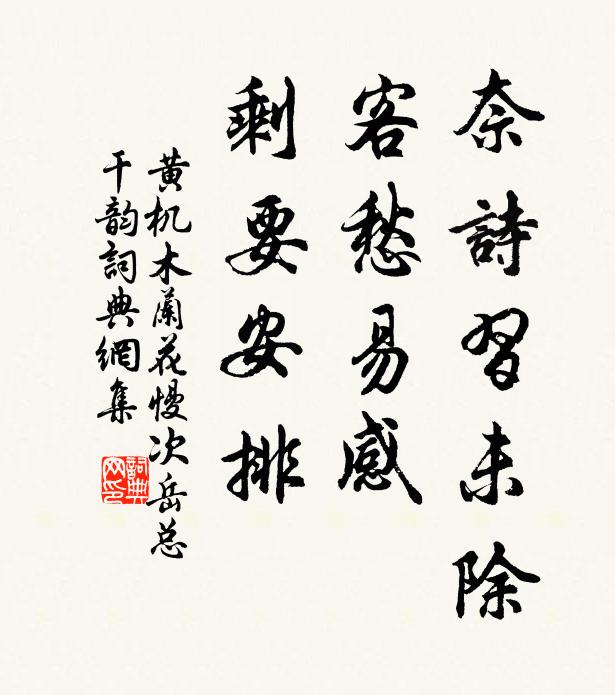 奈詩習未除
客愁易感
剩要安排
黄机木蘭花慢次岳总
干韵詞典網集
詞典网印